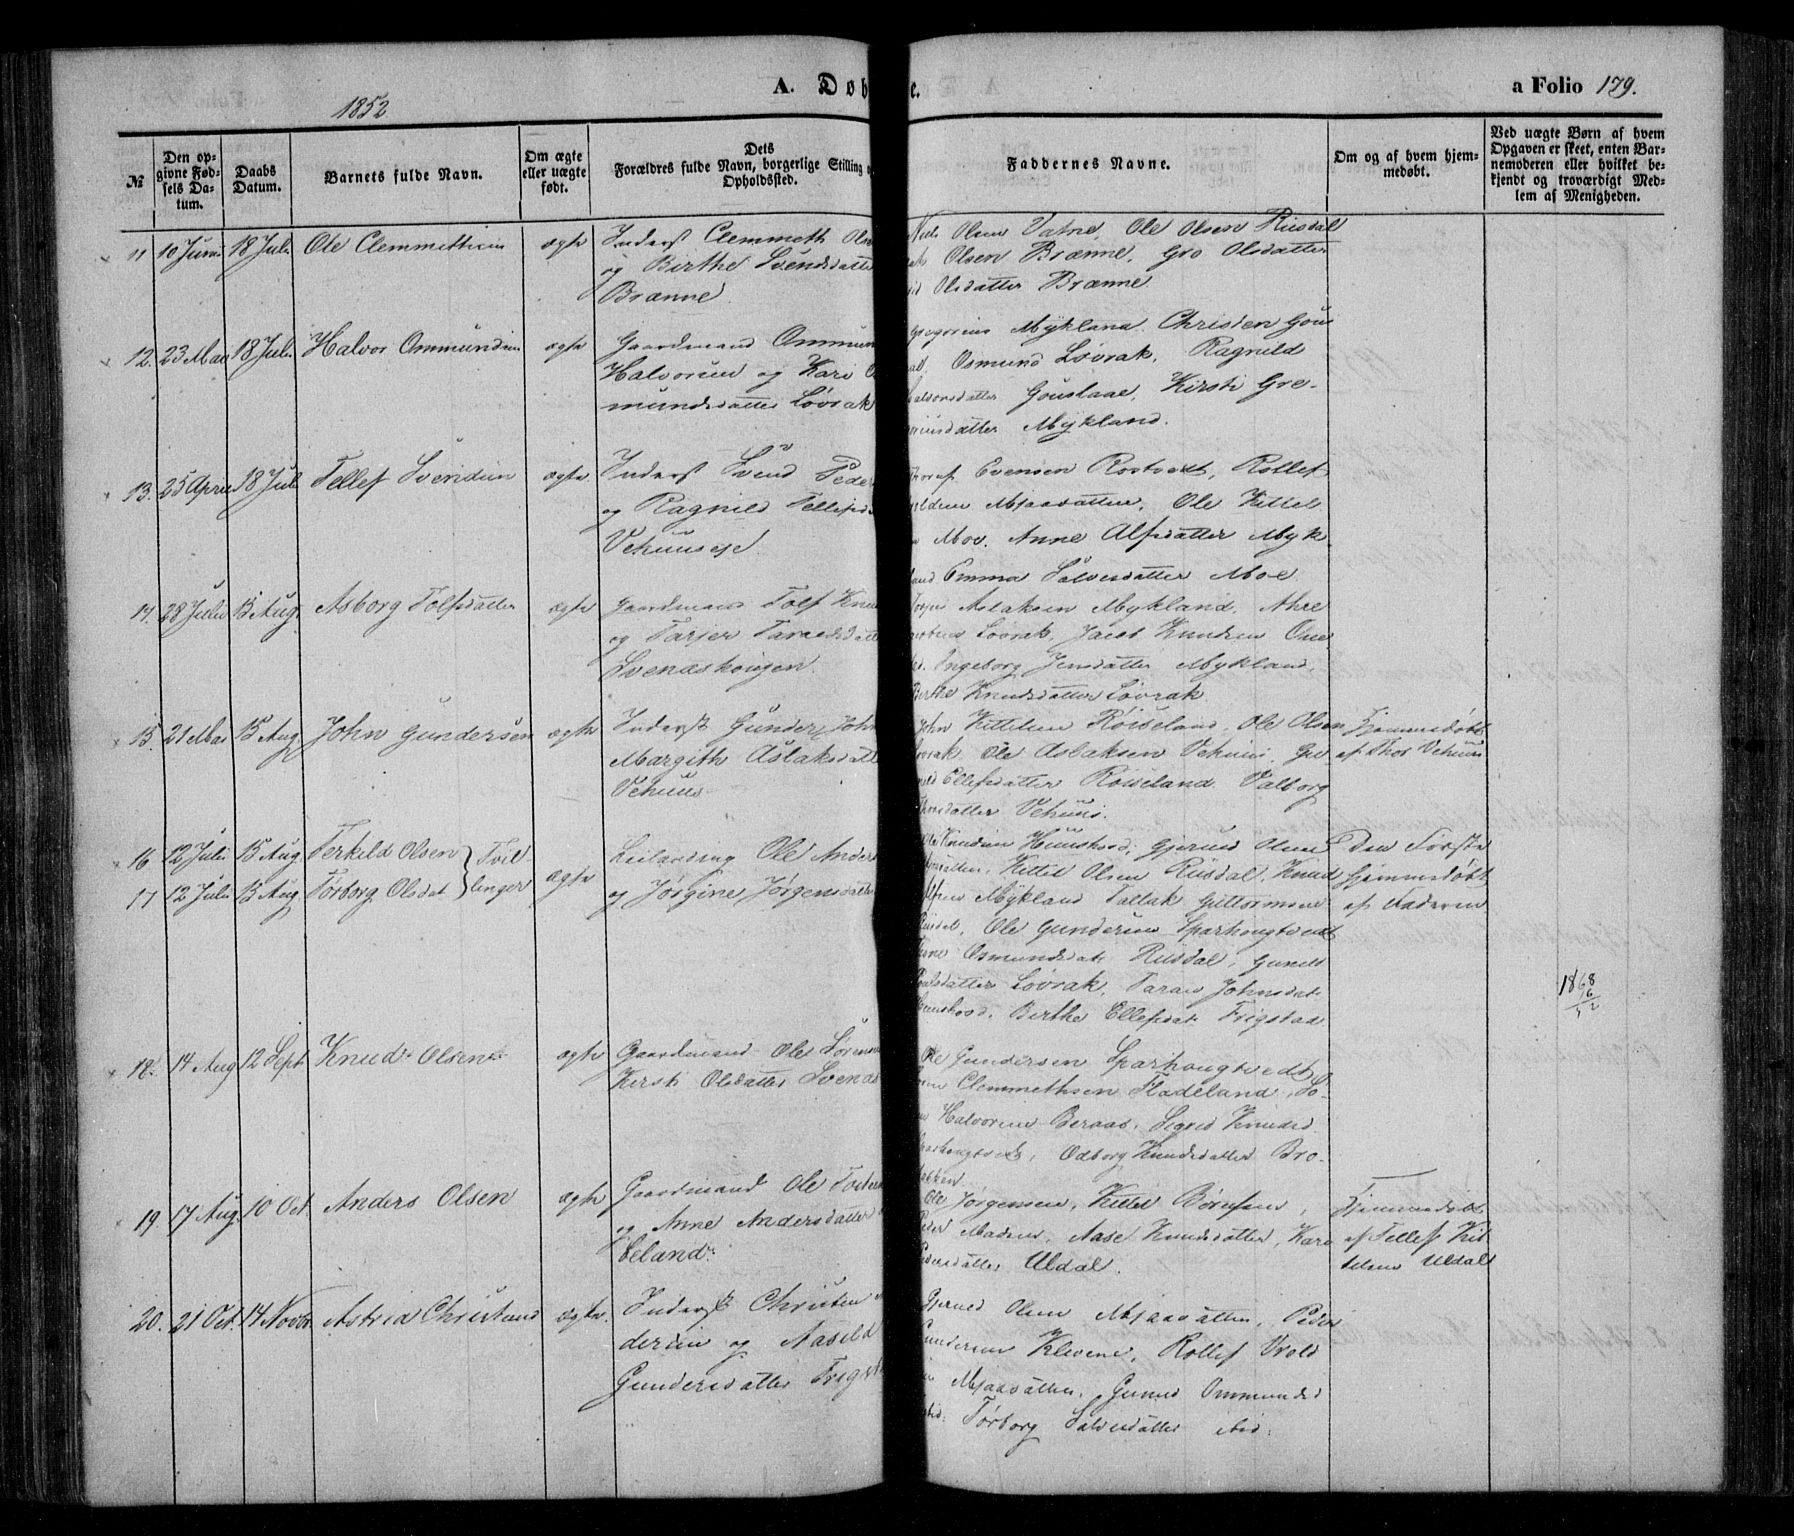 1852
A. Døb e.
a Folio 179.
№
Den op-
givne Fød-
sels Da-
tum.
Daabs
Datum.
Barnets fulde Navn.
Om ægte
eller uægte
født.
Dets
Forældres fulde Navn, borgerlige Stilling o
Opholdssted.
Faddernes Navne.
Om og af hvem hjem-
medøbt.
Ved uægte Børn af hvem
Opgaven er skeet, enten Bar-
nemoderen eller hvilket be-
kjendt og troværdigt Med-
lem af Menigheden.
11 10 Juni 18 Juli Ole Clemmethsen ægte Inderst Clemmeth Olse
og Birthe Svendsdatte
Brænne.
Niels Olsen Vatne, Ole Olsen Riisdal
Olsen Brænne, Gro Olsdatter
Olsdatter Brænne
12. 23 Mai 18 Juli Halvor Ommundsen ægte Gaardmand Ommun
Halvorsen og Kari O
mundsdatter Løvrak
Gregorius Mykland Christen Gou
Osmund Løvrak, Ragnild
datter Gouslaae, Kirsti Gre-
datter Mykland.
13. 25 April 18 Juli Tellef Svendsen ægte Inderst Svend Peder
og Ragnild Tellefsd
Vehuuseje.
Evensen Rostvedt, Rollef
Mjaavatten, Ole Kittel
Moe. Anne Alfsdatter Myk
land Emma Salvesdatter Moe.
14. 28 Juli 15 Aug. Asborg Tolfsdatter ægte Gaardmand Tolf Knu
og Tarjer Taraldsdatte
Svenaskougen.
Aslaksen Mykland, Ahre
Løvrak, Jacob Knudsen
Ingeborg Jensdatter Mykland,
Birthe Knudsdatter Løvrak
15. 21 Mai 15 Aug John Gundersen ægte Inderst Gunder John
Margith Aslaksdatte
Vehuus
John Kittilsen Røiseland, Ole Olsen
Løvrak, Ole Aslaksen Vehuus, Gu
Ellefsdatter Røiseland Valborg
datter Vehuus.
Hjemmedøbt
af Thor Vehuus
16 12 Juli 15 Aug Terkild Olsen } Tvil-
17 12 Juli 15 Aug Tørborg Olsdat } linger
ægte Leilænding Ole Anders
og Jørgine Jørgensdatter
Ole Knudsen Huushovd, Gjerund Olsen
Kittel Olsen Riisdal, Knud
Mykland Tallak Guttormsen
Riisdal, Ole Gundersen Sparhougtvedt
Osmundsdat. Riisdal, Guneld
datter Løvrak, Taran Johnsdat.
Huushovd. Birthe Ellefsdat. Frigstad
Den Første
Hjemmedøbt
af Faderen
1868
18. 14 Aug 12 Sept Knud Olsen ægte Gaardmand Ole Sørens
Kirsti Olsdatter Svenas
Ole Gundersen Sparhougtvedt
Clemmethsen Fladeland, So-
Halvorsen Beraas. Sigrid Knudsd.
Sparhougtvedt, Odborg Knudsdatter Bro-
bækken
19. 17 Aug. 10 Oct. Anders Olsen ægte Gaardmand Ole Torkels
og Anne Andersdatter
Eeland.
Ole Jørgensen, Kittel Børufsen,
Peder Madsen, Aase Knudsdatter, Kara
Pedersdatter Uldal.
Hjemmedøbt
af Tellef Kit
telsen Uldal
20. 21 Oct. 14 Novbr Astrid Christensd ægte. Inderst Christen
dersen og Aasild
Gundersdatter Frigst
Gjerund Olsen Mjaavatten, Peder
Gundersen Klevene, Rollef Vrold
Mjaavatten, Guned Ommundsd
Tørborg Salvesdatter ibid.